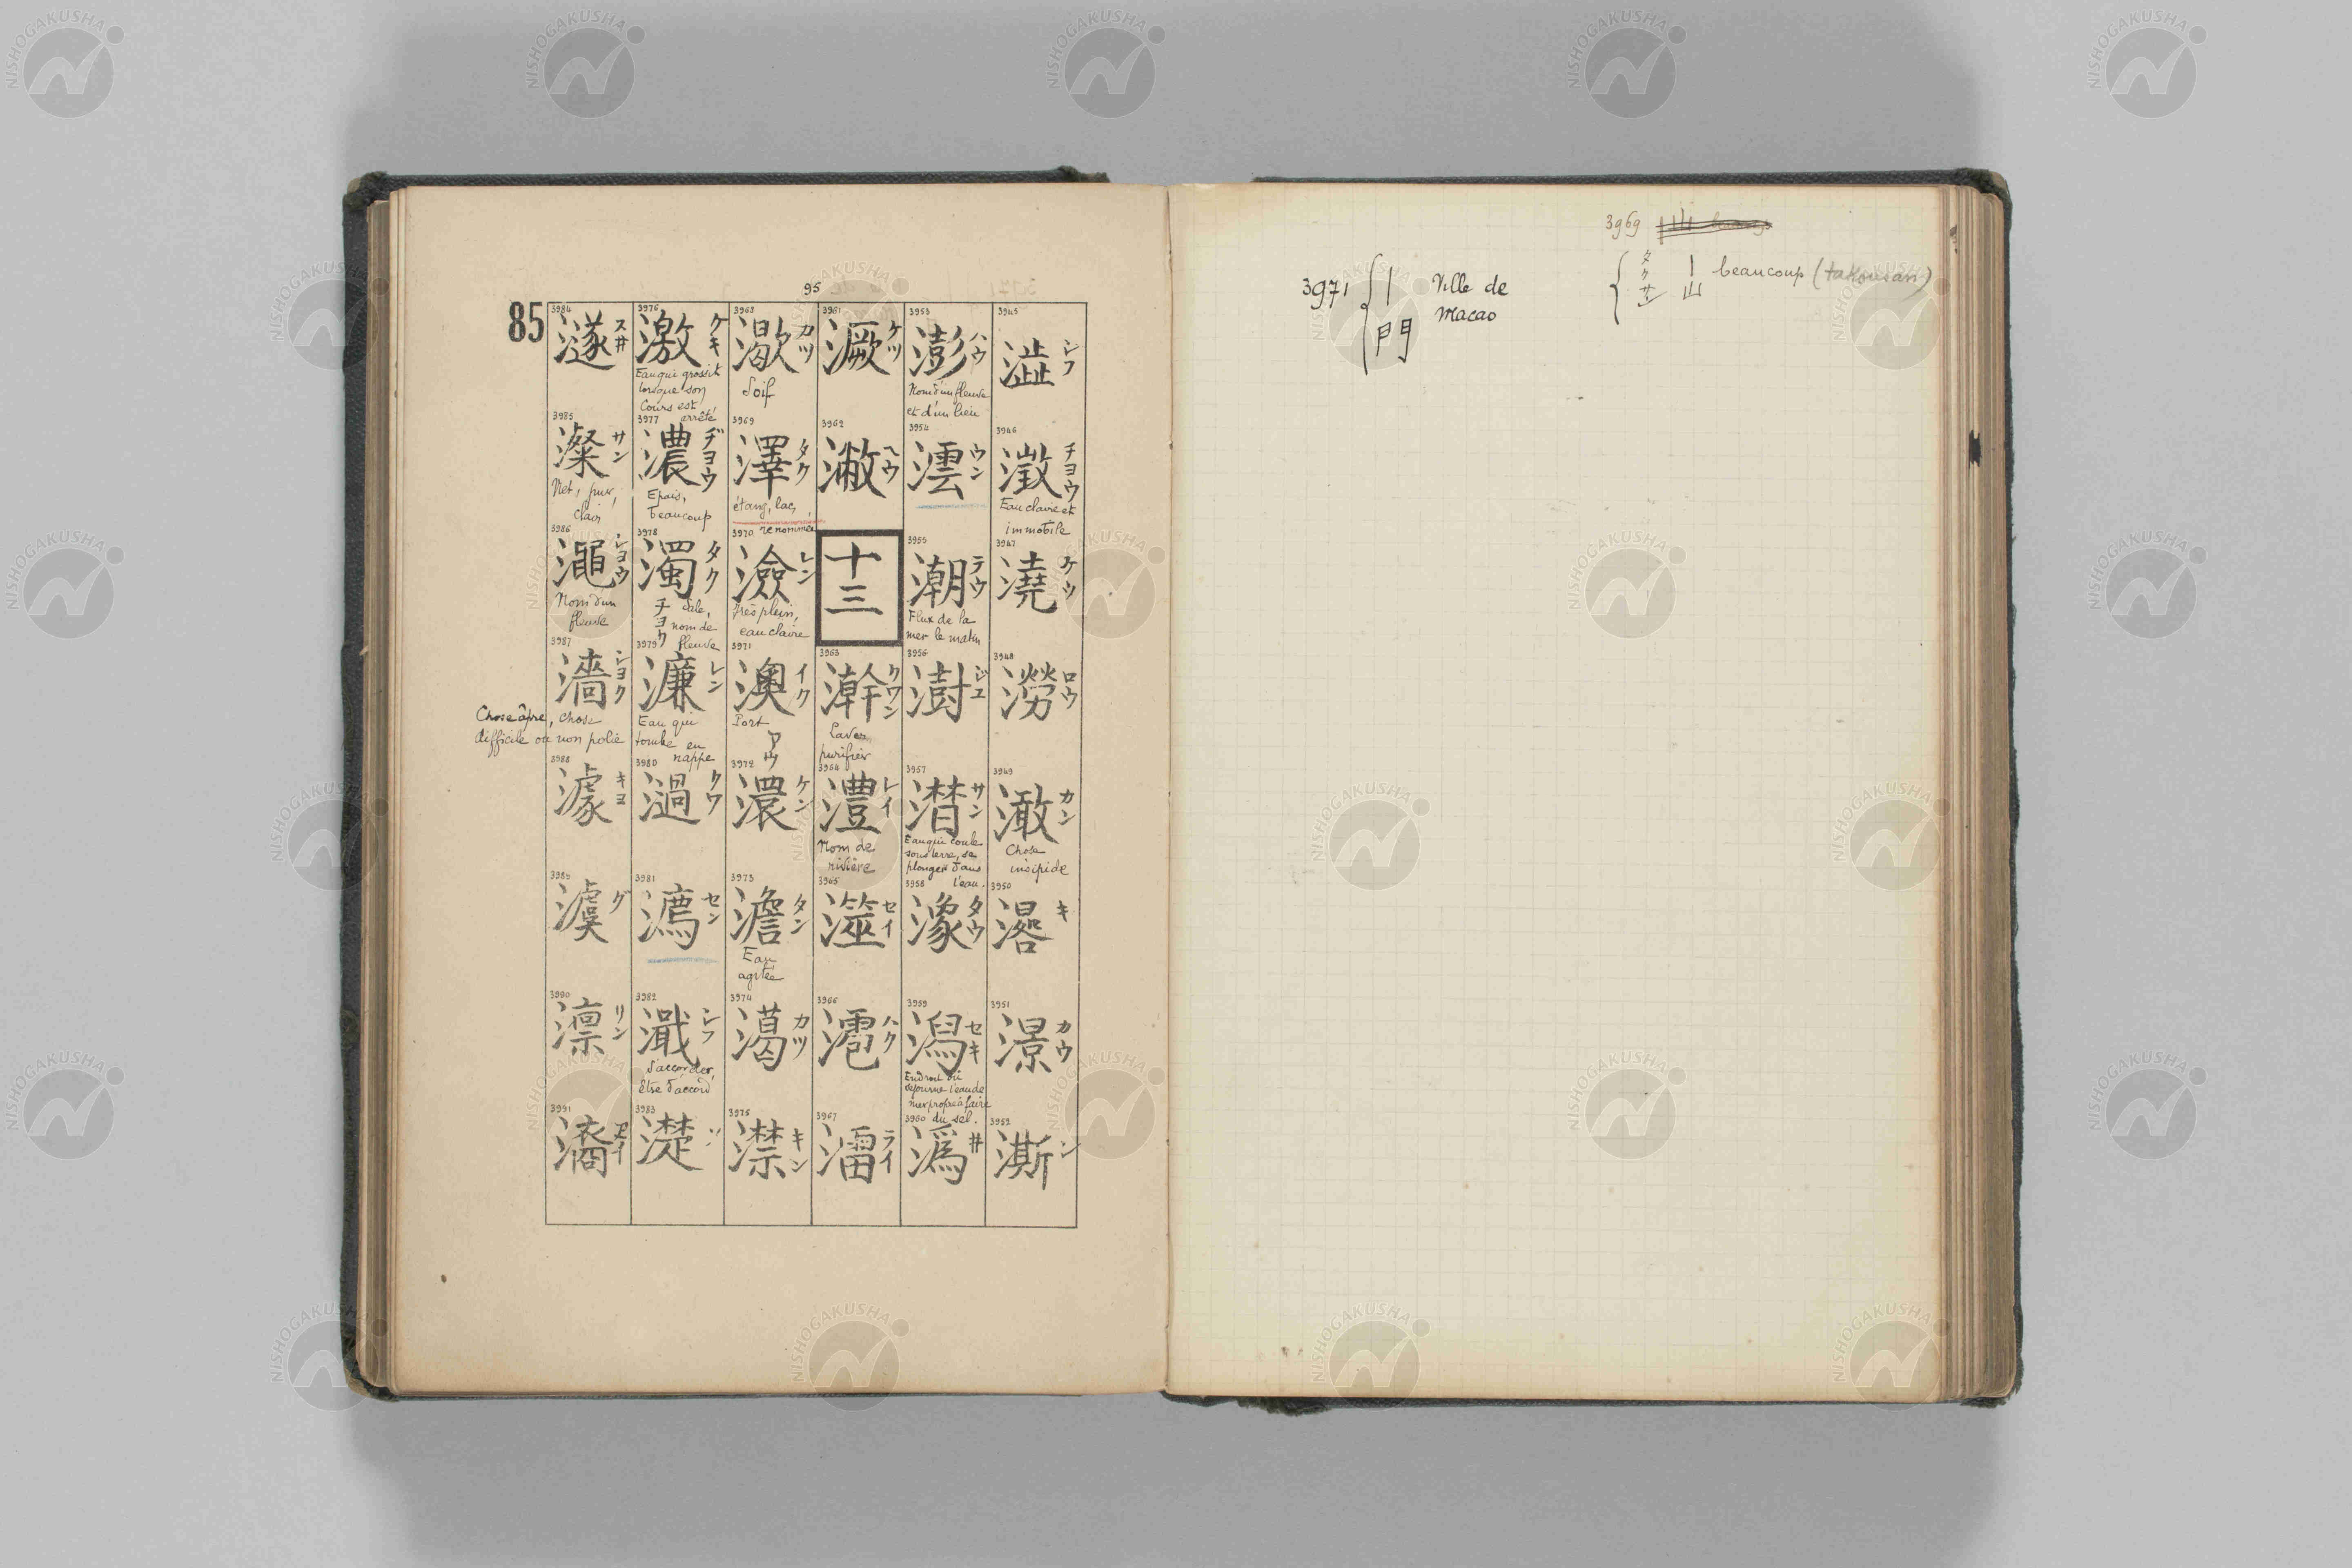 95
85
3945
澁 シフ
3946
澂 チヨウ
Eau claire et
immobile
3947
澆 ケウ
3948
澇 ロウ
3949
澉 カン
Chose
insipide
3950
キ
3951
澋 カウ
3952
澌
3953
澎 ハウ
Nom d'un fleuve
et d'un lieu
3954
澐 ウン
3955
潮 テウ
Flux de la
mer le matin
3956
澍 ジユ
3957
潸 サン
Eau qui coule
sous terre, se
plonger dans
l'eau.
3958
潒 タウ
3959
潟 セキ
Endroit où
séjourne l'eau de
mer propre à faire
du sel.
3960
潙 井
3961
潎 ヘウ
3962
十三
3963
澣 クワン
Laver
purifier
3964
澧 レイ
Nom de
rivière
3965
澨 セイ
3966
雹 ハク
3967
澑 ライ
3968
カツ
Soif
3969
澤 タク
étang, lac,
renommée
3970
澰 レン
très plein,
eau claire
3971
澳 イク
Port
アウ
3972
澴 ケン
3973
澹 タン
Eau
agitée
3974
カツ
3975
澿 キン
3976
激 ケキ
Eau qui grossit
lorsque son
cours est
arrêté
3977
濃 ヂヨウ
Epais,
beaucoup
3978
濁 タク
チヨク
Sale,
nom de
fleuve
3979
濂 レン
Eau qui
tombe en
nappe
3980
濄 クワ
3981
セン
3982
濈 シフ
S'accorder,
être d'accord
3983
濋
3984
澻 ス井
3985
澯 サン
Net, pur,
clair
3986
澠 シヨウ
Nom d'un
fleuve
3987
濇 シヨク
Chose âpre, chose
difficile ou non polie
3988
澽 キヨ
3989
澞 グ
3990
澟 リン
3991
エイ
3969
タクサン
｜山 beaucoup (takousan)
3971
｜門
Ville de
Macao
NISHOGAKUSHA